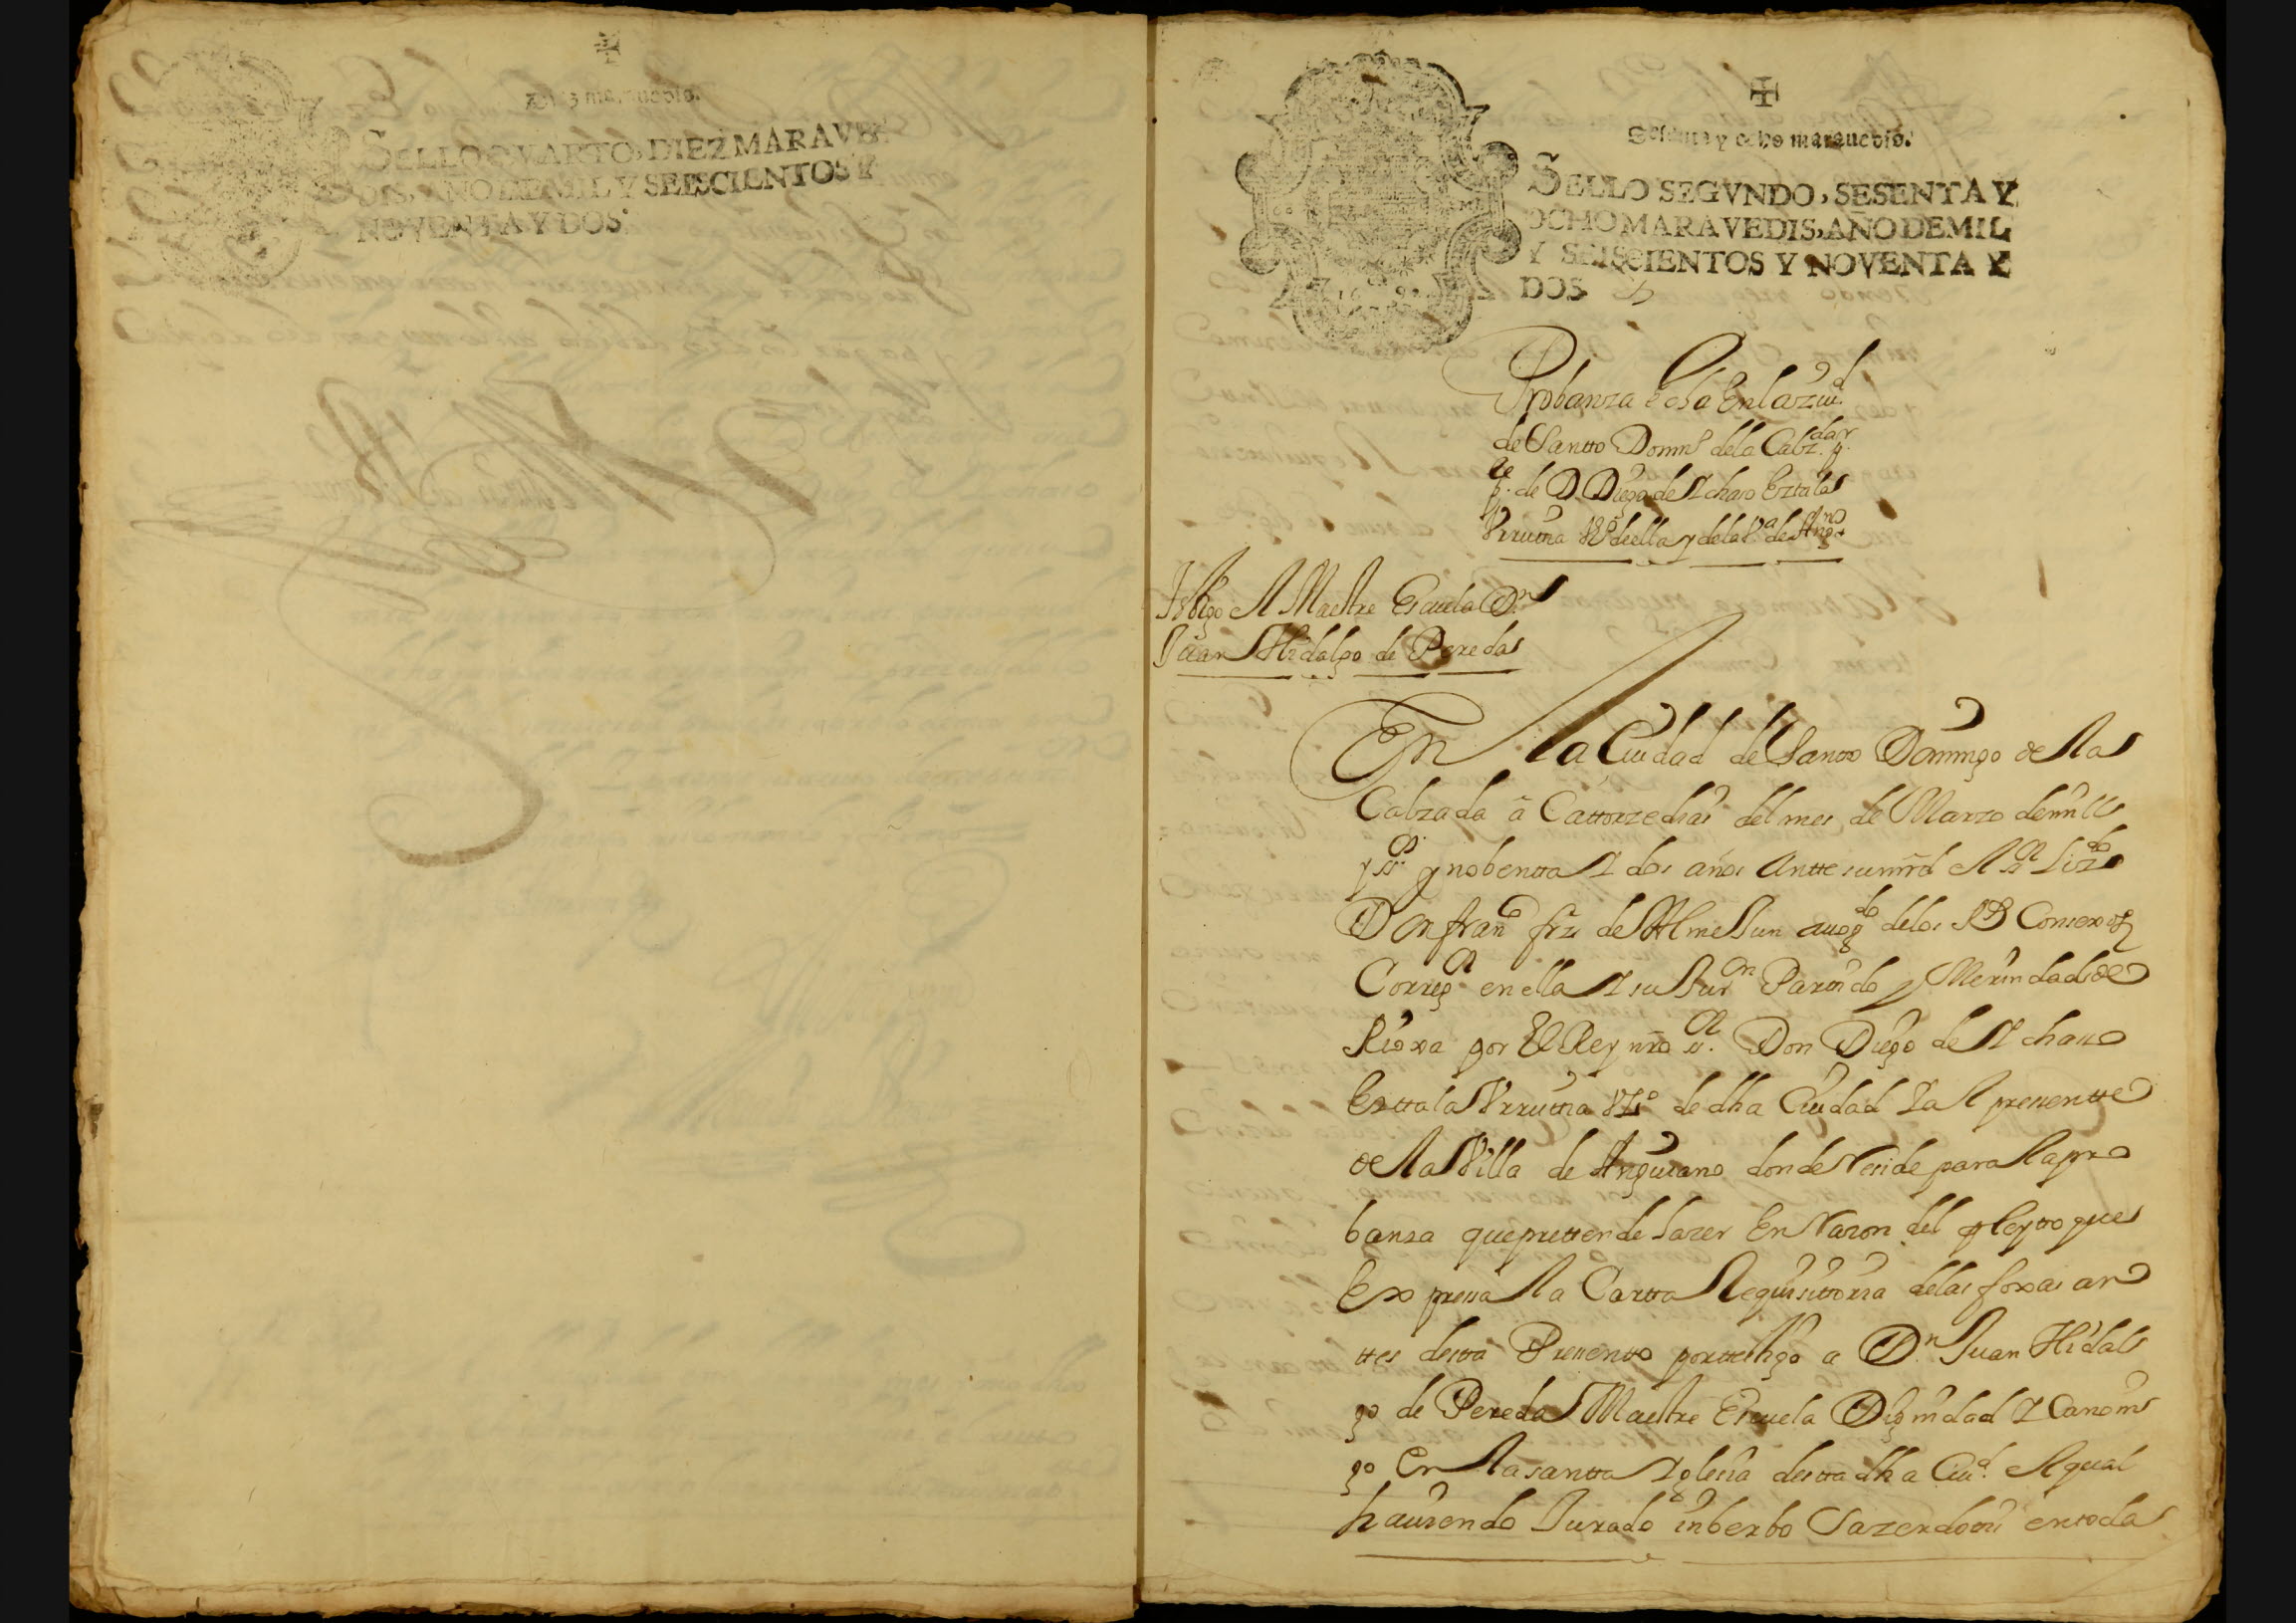 Diez maravedis.
SELLO QVARTO, DIEZ MARAVE-
DIS, AÑO DE MIL Y SEISCIENTOS Y
NOVENTA Y DOS.
Sesenta y ocho maravedis.
SELLO SEGVNDO, SESENTA Y
OCHO MARAVEDIS, AÑO DE MIL
Y SEISCIENTOS Y NOVENTA Y
DOS
Probanza echa En la Ziud
de Santto Domng dela Calzda pr
pte de D Diego de Ichaso Extala
Vrrutia Vº de ella y dela Vª de Angno
Tsttigo el Maestre Escuela Dn
Juan Hidalgo de Pereda
En la Ciudad de Santo Domingo de la
Calzada â Cattorze dias del mes de Marzo de mill
y ssos y nobentta I dos años Antte su mrd el Sr Lizdo
Don franco frz de Almellun auogdo delos Rs Consexos
Corregor en ella I su Juron Partido y Merindad de
Rioxa por El Rey nro sr. Don Diego de Ichaso
Exttala Vrrutia Vzº de dha Ciudad I al presentte
de la Villa de Anguiano donde Reside para la pro
banza que prettende hazer En Razon del pleytto que
Expresa la Cartta Requisittoria delas foxas an
ttes destta Presentto por ttestigo a Dn Juan Hidal
go de Pereda Maestre Escuela Dignidad I Canoni
go En la santta Iglesia destta dha Ciud. el qual
hauiendo Jurado in berbo Sazerdotis en toda